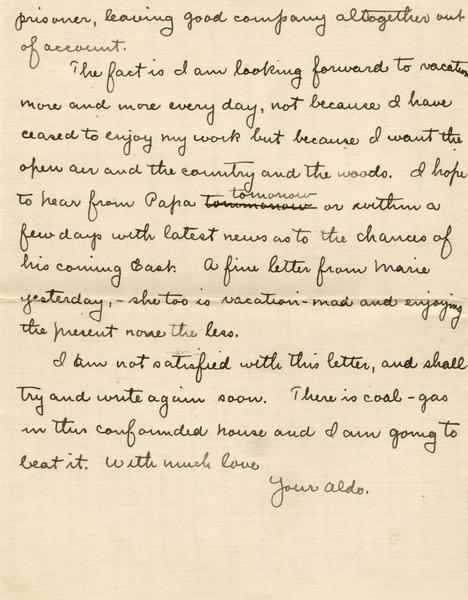 prisoner, leaving good company altogether out
of account.
The fact is I am looking forward to vacation
more and more every day, not because I have
ceased to enjoy my work but because I want the
open air and the country and the woods. I hope
tomorrow
to hear from Papa tommorow or within a
few days with latest news as to the chances of
his coming East. A fine letter from Marie
yesterday, - she too is vacation-mad and enjoying
the present none the less.
I am not satisfied with this letter, and shall
try and write again soon. There is coal-gas
in this confounded house and I am going to
beat it. With much love
Your Aldo.